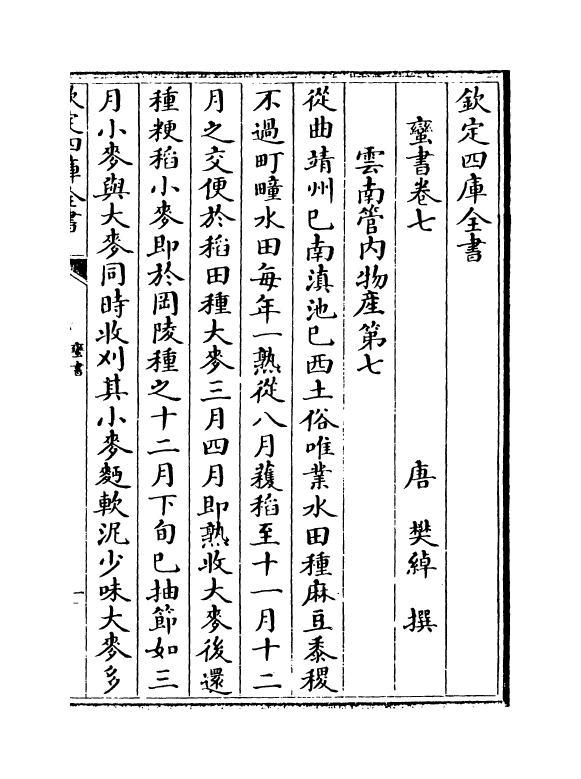 欽定四庫全書
蠻書卷七
唐 樊綽 撰
雲南管内物產第七
從曲靖州已南滇池已西土俗唯業水田種麻豆黍稷
不過町疃水田每年一熟從八月穫稻至十一月十二
月之交便於稻田種大麥三月四月即熟收大麥後還
種粳稻小麥即於岡陵種之十二月下旬已抽節如三
月小麥與大麥同時收刈其小麥麪軟泥少味大麥多
欽定四庫全書
蠻書
一